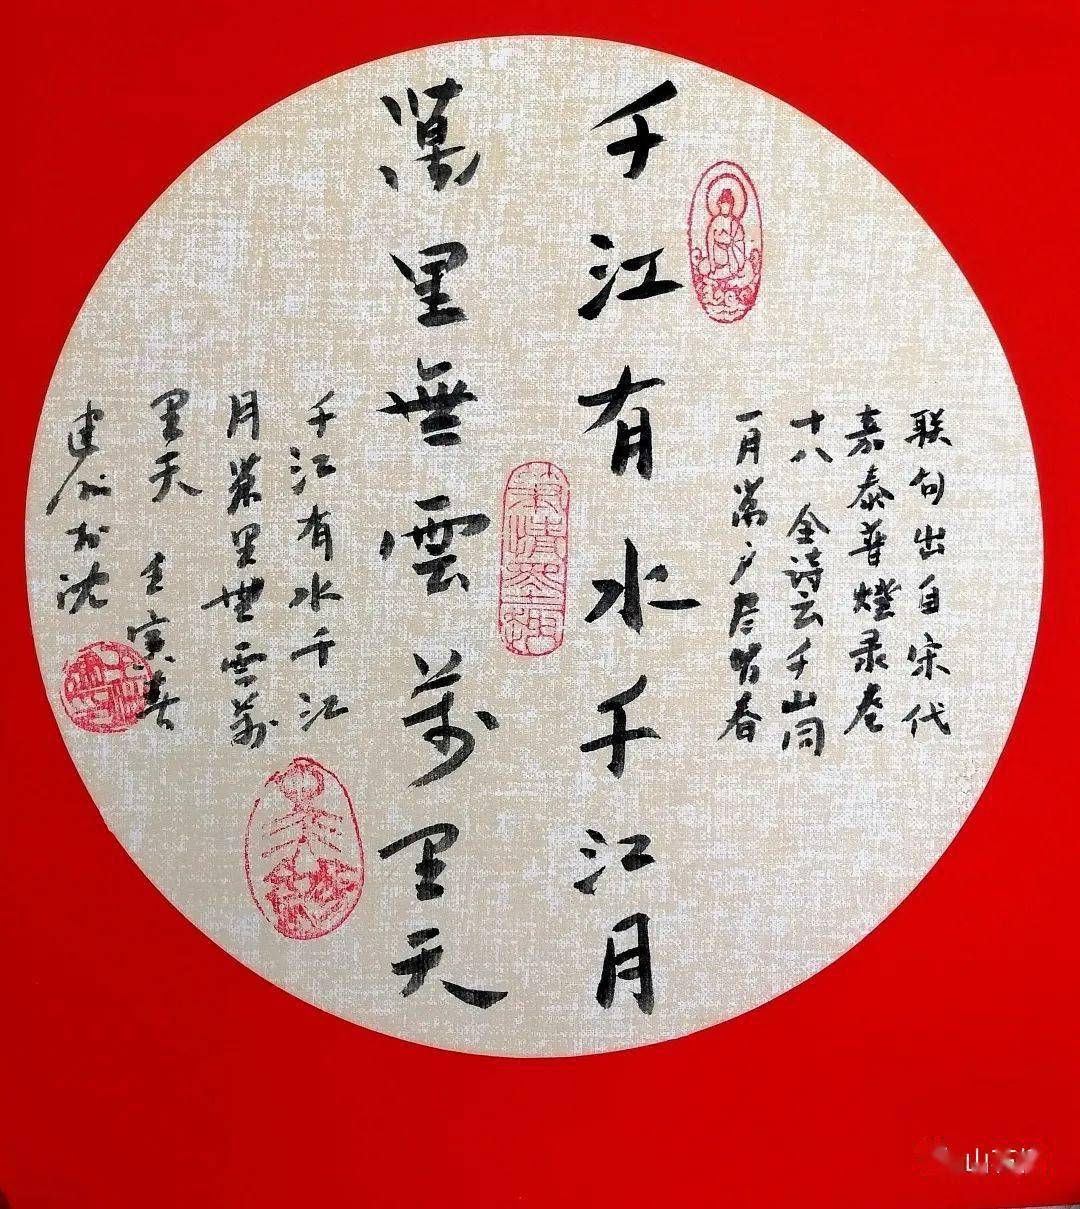 联句出自宋代
嘉泰普燈录卷
十八 全诗云千山同
一月萬户尽皆春
千江有水千江月
萬里無雲萬里天
千江有水千江
月萬里無雲萬
里天 壬寅春
建 沈
山